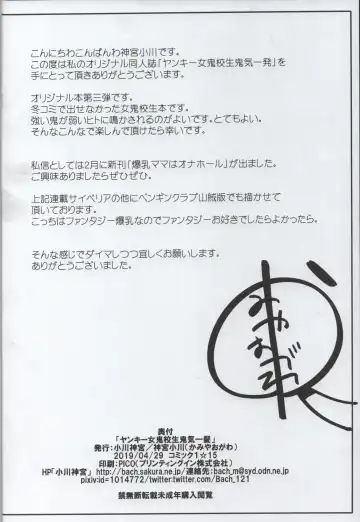 こんにちわこんばんわ神宮小川です。
この度は私のオリジナル同人誌「ヤンキー女鬼校生鬼気一発」を
手にとって頂きありがとうございます。
オリジナル本第三弾です。
冬コミで出せなかった女鬼校生本です。
強い鬼が弱いヒトに鳴かされるのがよいです。とてもよい。
そんなこんなで楽しんで頂けたら幸いです。
私信としては2月に新刊「爆乳ママはオナホール」が出ました。
ご興味ありましたらぜひぜひ。
上記連載サイベリアの他にペンギンクラブ山賊版でも描かせて
頂いております。
こっちはファンタジー爆乳なのでファンタジーお好きでしたらよかったら。
そんな感じでダイマしつつ宜しくお願いします。
ありがとうございました。
奥付
「ヤンキー女鬼校生鬼気一髪」
発行:小川神宮／神宮小川(かみやおがわ)
2019/04/29 コミック1☆15
印刷:PICO(プリンティングイン株式会社)
HP「小川神宮」http://bach.sakura.ne.jp/連絡先:bach_m@syd.odn.ne.jp
pixiv:id=1014772/twitter:twitter.com/Bach_121
禁無断転載未成年購入閲覧